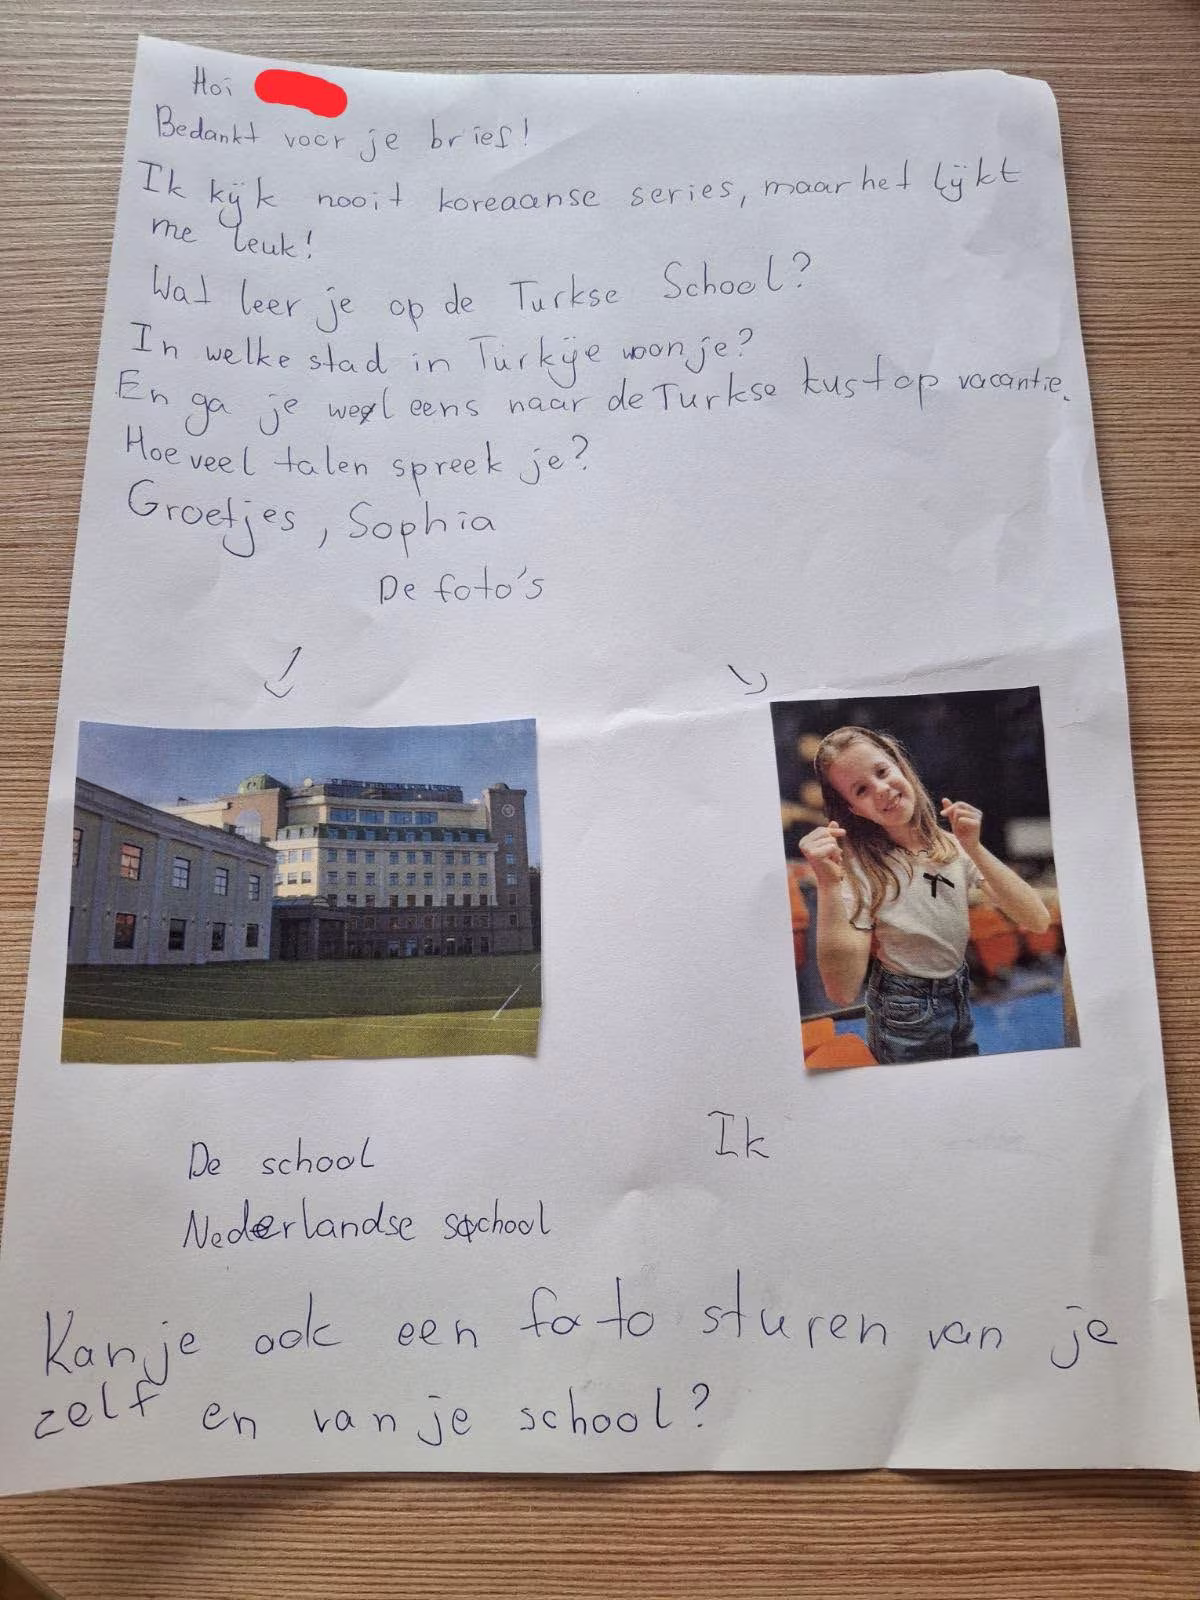 Hoi
Bedankt voor je brief!
Ik kijk nooit koreaanse series, maar het lijkt
me leuk!
Wat leer je op de Turkse School?
In welke stad in Turkije woon je?
En ga je wel eens naar de Turkse kust op vacantie.
Hoeveel talen spreek je?
Groetjes, Sophia
De foto's
De school
Nederlandse school
Ik
Kan je ook een foto sturen van je
zelf en van je school?